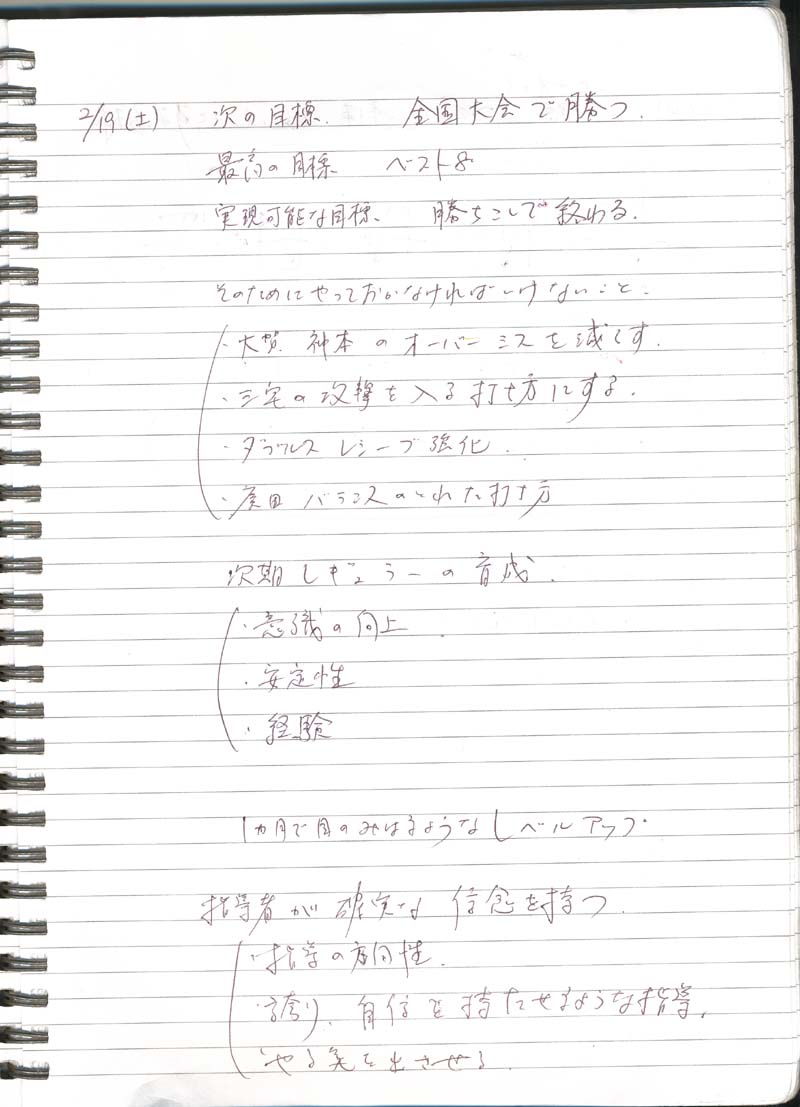 2/19(土) 次の目標. 全国大会で勝つ.
最高の目標 ベスト8
実現可能な目標、 勝ちこしで終わる.
そのためにやっておかなければいけないこと.
・大賀 神本のオーバーミスを減くす.
・三宅の攻撃を入る打ち方にする.
・ダブルス レシーブ強化.
・原田 バランスのとれた打ち方
次期レギュラーの育成.
・意識の向上.
・安定性
・経験
1カ月で目のみはるようなレベルアップ.
指導者が確実な信念を持つ.
・指導の方向性.
・誇り、自信を持たせるような指導.
・やる気を出させる.